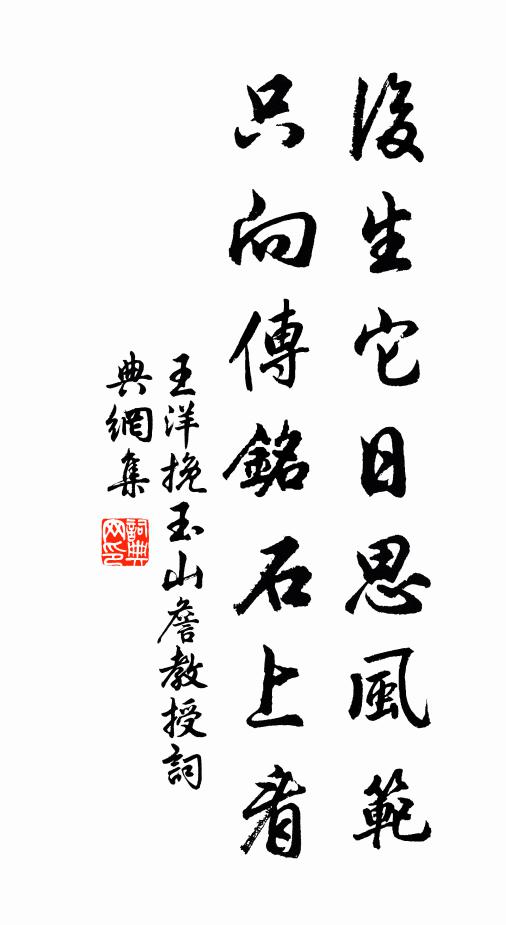 後生它日思風範
只向傳銘石上看
王洋挽玉山詹教授詞
典網集
詞典网印